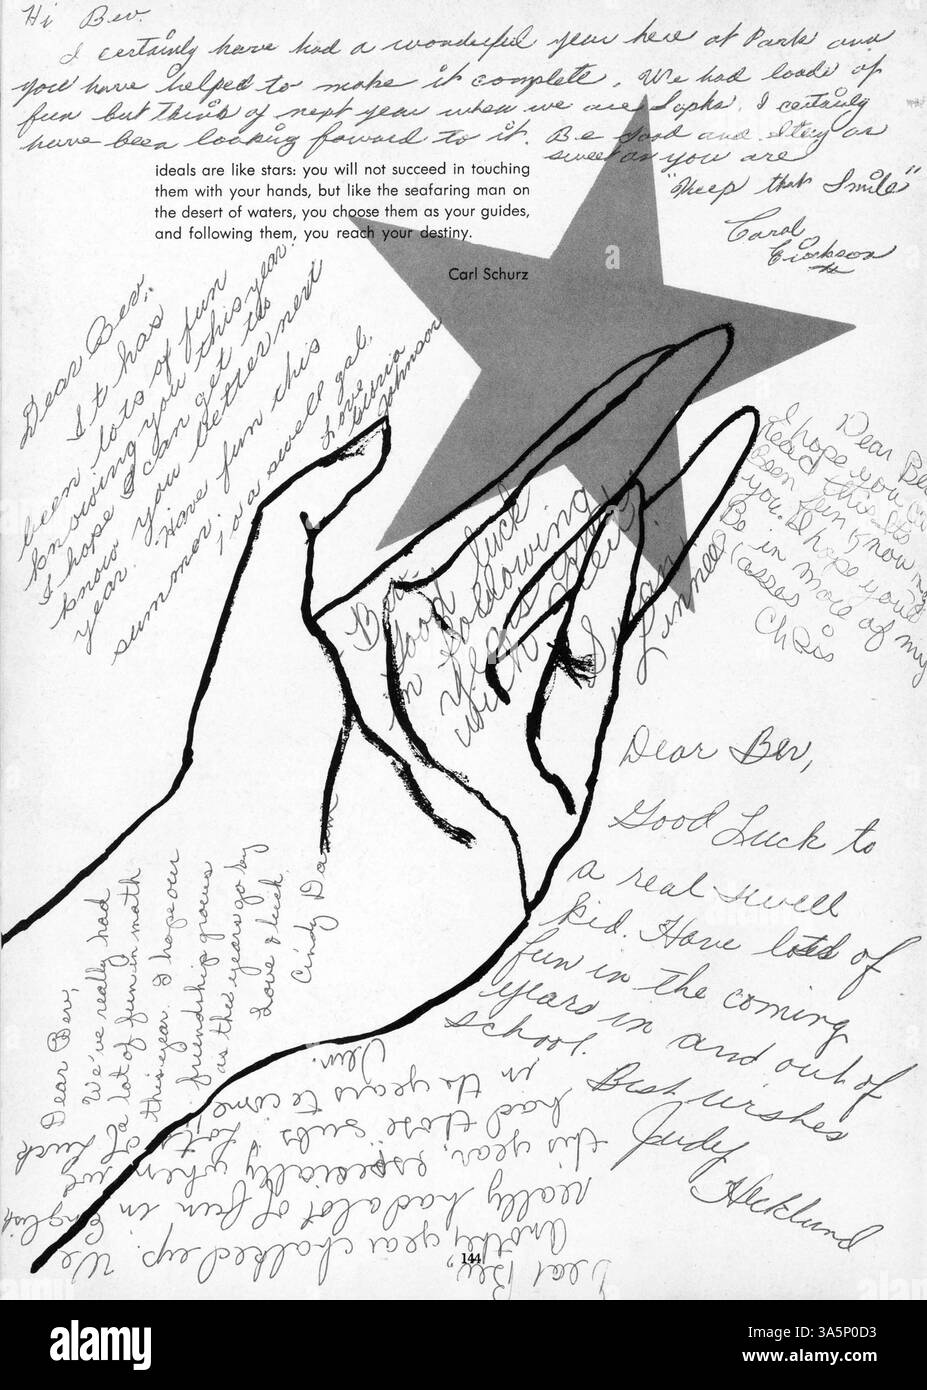 Hi Bev.
I certainly have had a wonderful year here at Park and
you have helped to make it complete. We had loads of
fun but think of next year when we are Sophs. I certainly
have been looking foward to it. Be good and stay as
sweet as you are
"Keep that Smile"
Carol
Erickson
ideals are like stars: you will not succeed in touching
them with your hands, but like the seafaring man on
the desert of waters, you choose them as your guides,
and following them, you reach your destiny.
Carl Schurz
Dear Bev,
It has
been lots of fun
knowing you this year.
I hope I can get to
know you better next
year. Have fun this
summer.
a swell gal.
Love
Johnson
Dear Bev
I hope you
read this. It's
been fun know
you. I hope you're
in more of my
classes
Chris
Bev,
Good luck
in following
years
Susan
Linnell
Dear Bev,
Good Luck to
a real swell
kid. Have lots of
fun in the coming
years in and out of
school.
Best wishes
Judy
Hecklund
Dear Bev,
We've really had
a lot of fun in math
this year. I hope our
friendship grows
as the years go by
Love & luck
Cindy
Dear Bev,
Another year chalked up. We
really had a lot of fun in English
this year, especially when we
had those subs. Lots of luck
in the years to come.
144
alamy
Image ID: 3A5P0D3
www.alamy.com